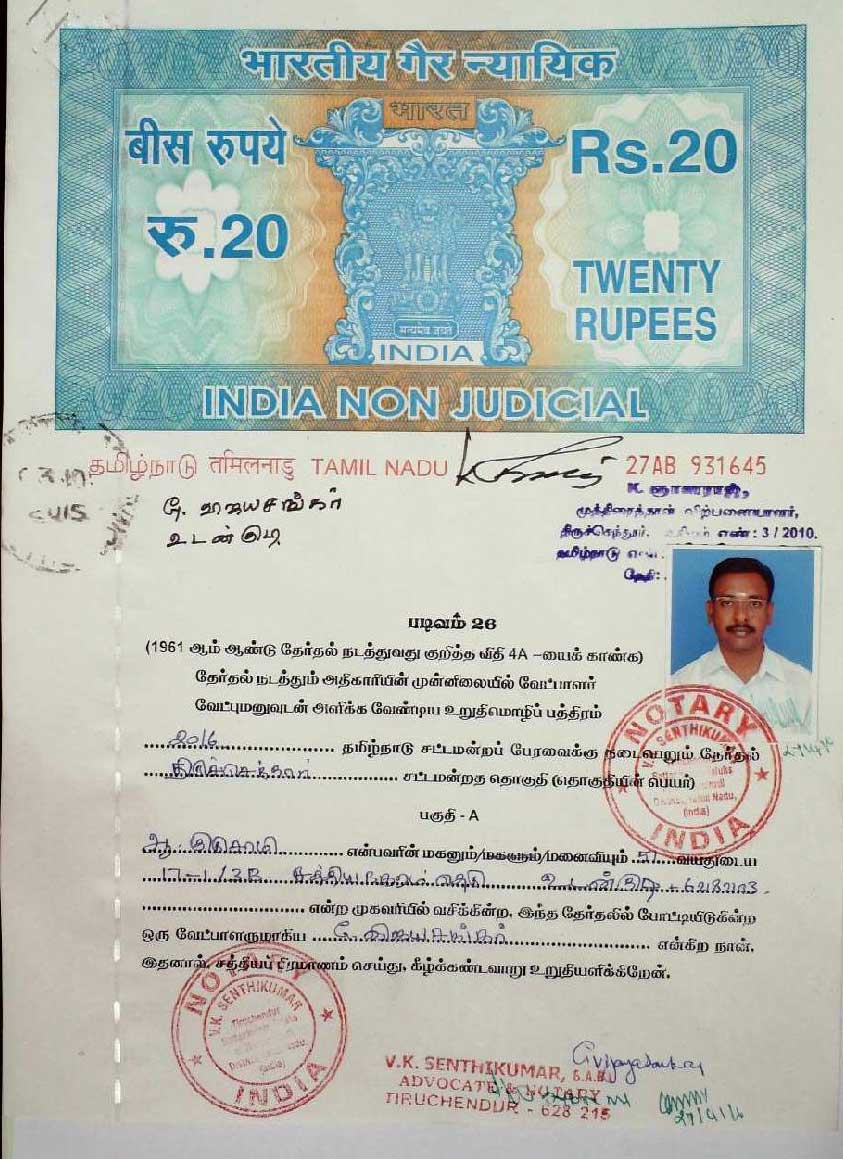 भारतीय गैर न्यायिक
भारत
बीस रुपये
Rs.20
रु.20
TWENTY
RUPEES
सत्यमेव जयते
INDIA
INDIA NON JUDICIAL
தமிழ்நாடு तमिलनाडु TAMIL NADU 27AB 931645
உடன்குடி
முத்திரைத்தாள் விற்பனையாளர்,
திருச்செந்தூர். எண்: 3 / 2010.
படிவம் 26
(1961 ஆம் ஆண்டு தேர்தல் நடத்துவது குறித்த விதி 4A –யைக் காண்க)
தேர்தல் நடத்தும் அதிகாரியின் முன்னிலையில் வேட்பாளர்
வேட்புமனுவுடன் அளிக்க வேண்டிய உறுதிமொழிப் பத்திரம்
2016 தமிழ்நாடு சட்டமன்றப் பேரவைக்கு நடைபெறும் தேர்தல்
திருச்செந்தூர் சட்டமன்றத தொகுதி (தொகுதியின் பெயர்)
பகுதி - A
என்பவரின் மகனும்/மகளும்/மனைவியும் 51 வயதுடைய
17-1/3B உடன்குடி - 628203
என்ற முகவரியில் வசிக்கின்ற, இந்த தேர்தலில் போட்டியிடுகின்ற
ஒரு வேட்பாளருமாகிய ஜெயசங்கர் என்கிற நான்,
இதனால், சத்தியப் பிரமாணம் செய்து, கீழ்க்கண்டவாறு உறுதியளிக்கிறேன்.
NOTARY
V.K. SENTHIKUMAR
INDIA
NOTARY
V.K. SENTHIKUMAR
Tiruchendur
(India)
INDIA
V.K. SENTHIKUMAR, B.A.B.L
ADVOCATE & NOTARY
TIRUCHENDUR - 628 215
27/4/16